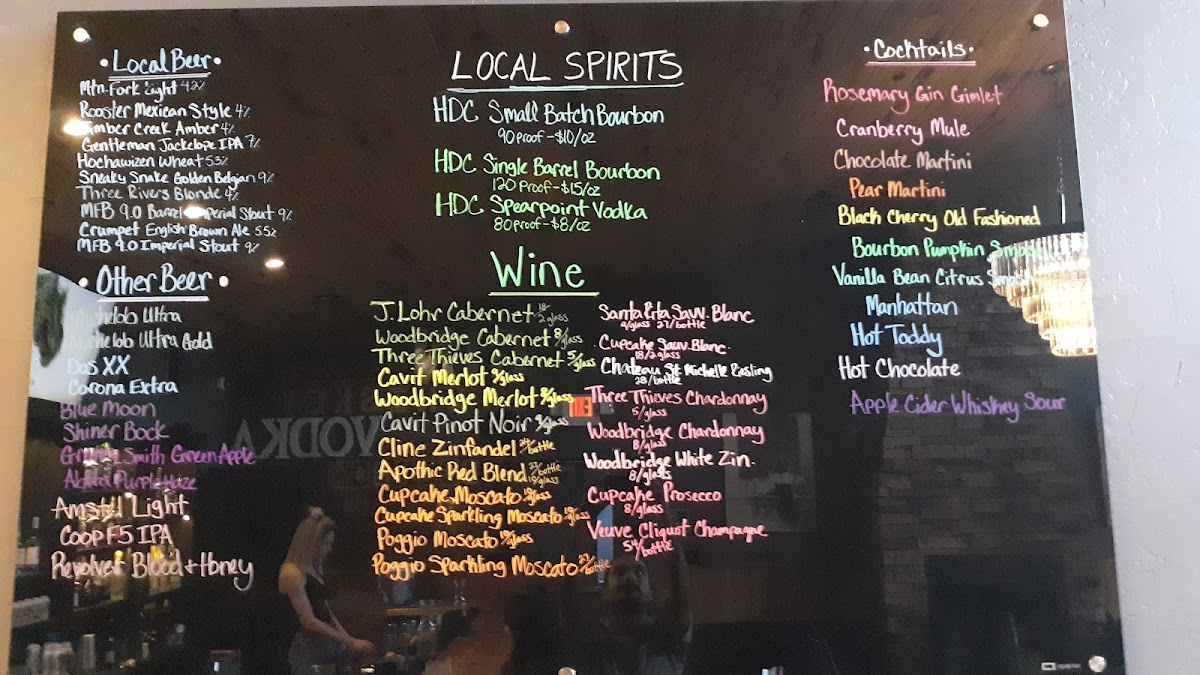 Local Beer
Mtn. Fork Light 4.2%
Rooster Mexican Style 4%
Timber Creek Amber 4%
Gentleman Jackelope IPA 7%
Hochawizen Wheat 5.3%
Sneaky Snake Golden Belgian 9%
Three Rivers Blonde 4%
MFB 9.0 Barrel Imperial Stout 9%
Crumpet English Brown Ale 5.5%
MFB 9.0 Imperial Stout 9%
Other Beer
Michelob Ultra
Michelob Ultra Gold
Dos XX
Corona Extra
Blue Moon
Shiner Bock
Granny Smith Green Apple
Abita Purple Haze
Amstel Light
Coop F5 IPA
Revolver Blood + Honey
LOCAL SPIRITS
HDC Small Batch Bourbon
90 proof - $10/oz
HDC Single Barrel Bourbon
120 Proof - $15/oz
HDC Spearpoint Vodka
80 proof - $8/oz
Wine
J. Lohr Cabernet
Woodbridge Cabernet 8/glass
Three Thieves Cabernet 5/glass
Cavit Merlot 9/glass
Woodbridge Merlot 8/glass
Cavit Pinot Noir 9/glass
Cline Zinfandel /bottle
Apothic Red Blend /bottle /glass
Cupcake Moscato /glass
Cupcake Sparkling Moscato /glass
Poggio Moscato 10/glass
Poggio Sparkling Moscato 27/bottle
Santa Rita Sauv. Blanc
9/glass 27/bottle
Cupcake Sauv. Blanc
18/2 glass
Chateau St Michelle Riesling
28/bottle
Three Thieves Chardonnay
5/glass
Woodbridge Chardonnay
8/glass
Woodbridge White Zin.
8/glass
Cupcake Prosecco
8/glass
Veuve Cliquot Champagne
54/bottle
Cocktails
Rosemary Gin Gimlet
Cranberry Mule
Chocolate Martini
Pear Martini
Black Cherry Old Fashioned
Bourbon Pumpkin Smash
Vanilla Bean Citrus Smash
Manhattan
Hot Toddy
Hot Chocolate
Apple Cider Whiskey Sour